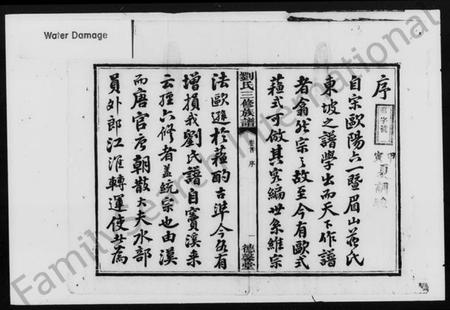 Water Damage
序
自宗歐陽六一暨眉山蘇氏
東坡之譜學出而天下作譜
者翕然宗之故至今有歐式
蘇式可倣其實編世系維宗
劉氏三修族譜
序
一
德馨堂
法歐遜於蘇酌古準今各有
增損我劉氏譜自實溪來
云經六修者並統宗也由漢
而唐官居朝散大夫水部
員外郎江淮轉運使
FamilySearch International